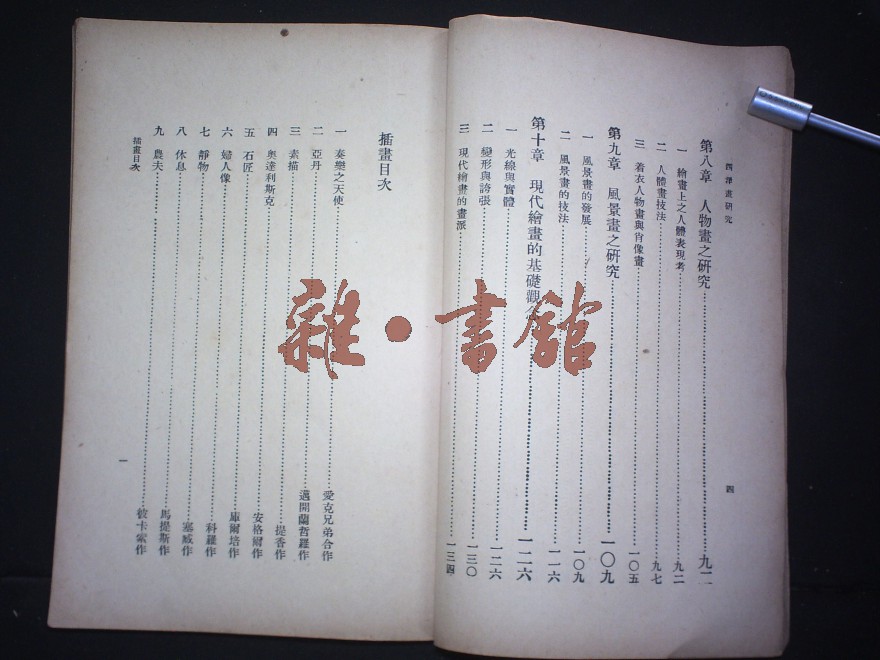 西洋畫研究
四
第八章 人物畫之研究……九二
一 繪畫上之人體表現考……九二
二 人體畫技法……九七
三 着衣人物畫與肖像畫……一〇五
第九章 風景畫之研究……一〇九
一 風景畫的發展……一〇九
二 風景畫的技法……一一六
第十章 現代繪畫的基礎觀念……一二六
一 光線與實體……一二六
二 變形與誇張……一三〇
三 現代繪畫的畫派……一三四
插畫目次
一 奏樂之天使……愛克兄弟合作
二 亞丹……邁開蘭哲羅作
三 素描……提香作
四 奧達利斯克……安格爾作
五 石匠……庫爾培作
六 婦人像……科羅作
七 靜物……
八 休息……馬提斯作
九 農夫……彼卡索作
插畫目次
一
雜·書館